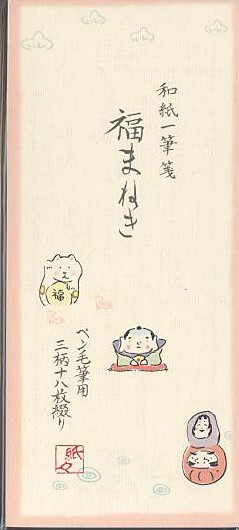 和紙一筆箋
福まねき
福
ペン毛筆用
三柄十八枚綴り
紙々